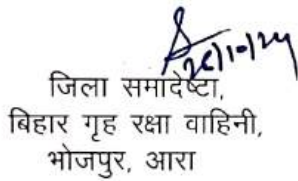 26/10/24
जिला समादेष्टा,
बिहार गृह रक्षा वाहिनी,
भोजपुर, आरा